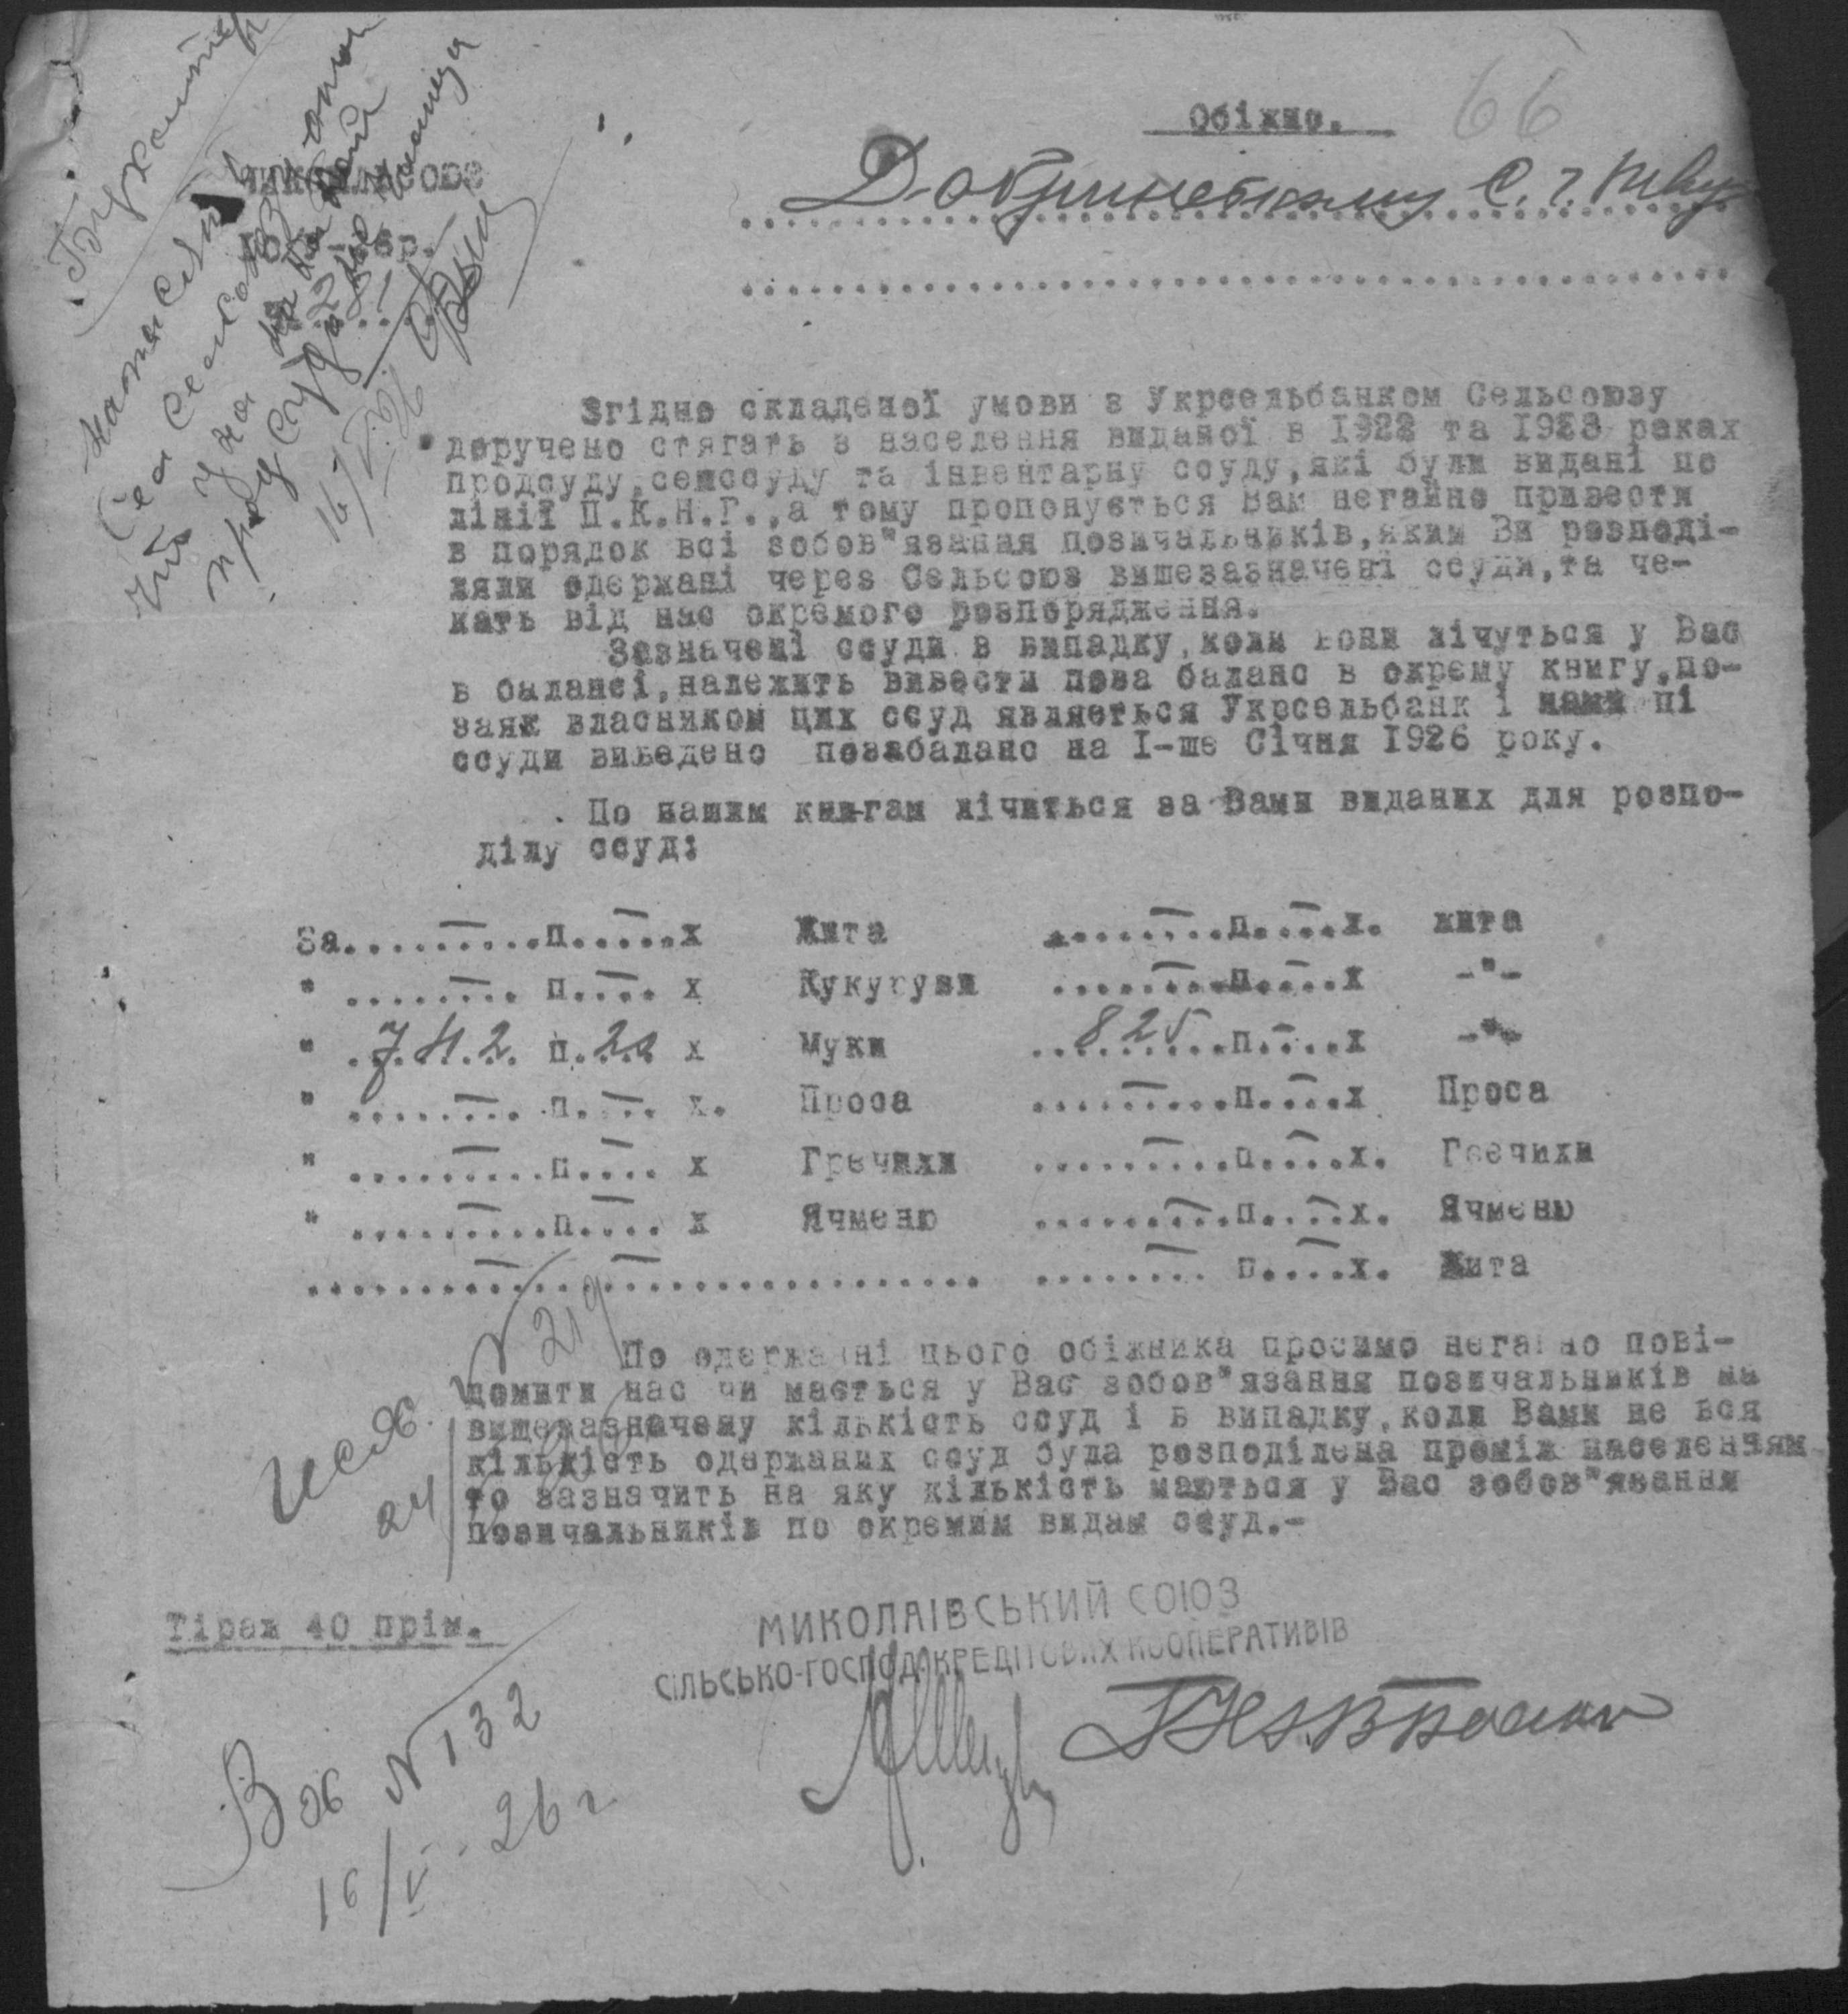 66
Обіжно.
Добринському С. г. т-ву
Бухгалтер
Написать
что
16/V.26
Згідно складеної умови з Укрсельбанком Сельсоюзу
доручено стягать з населення виданої в 1922 та 1923 роках
продсуду, семссуду та інвентарну ссуду, які були видані по
лінії П.К.Н.Г., а тому пропонується Вам негайно привести
в порядок всі зобов"язання позичальників, яким Ви розподі-
ляли одержані через Сельсоюз вишезазначені ссуди, та че-
кать від нас окремого розпорядження.
Зазначені ссуди в випадку, коли вони лічуться у Вас
в балансі, належить вивести поза баланс в окрему книгу, по-
заяк власником цих ссуд являється Укрсельбанк і нами ці
ссуди виведено позабаланс на I-ше Січня 1926 року.
По нашим книгам лічиться за Вами виданих для розпо-
ділу ссуд:
За.......—..п.—...х Жита .......—..п.—...х. жита
" .......—. п.—... х Кукурузи .......—..п.—...х -"-
" .742. п.20 х Муки ..825..п.—...х -"-
" .......—. п.—... х. Проса .......—..п.—...х Проса
" .......—..п.—... х Гречихи .......—..п.—...х. Гречихи
" .......—..п.—... х Ячменю .......—..п.—...х. Ячменю
.......—.....—................ .......—. п.—...х. Жита
По одержанні цього обіжника просимо негайно пові-
домити нас чи мається у Вас зобов"язання позичальників на
вищезазначену кількість ссуд і в випадку, коли Вами не вся
кількість одержаних ссуд була розподілена проміж населенням
то зазначить на яку кількість маються у Вас зобов"язання
позичальників по окремим видам ссуд.-
Исх. N 219
24/
Тіраж 40 прім.
МИКОЛАІВСЬКИЙ СОЮЗ
СІЛЬСЬКО-ГОСПОД. КРЕДІТОВИХ КООПЕРАТИВІВ
Вх N 132
16/V-26 г